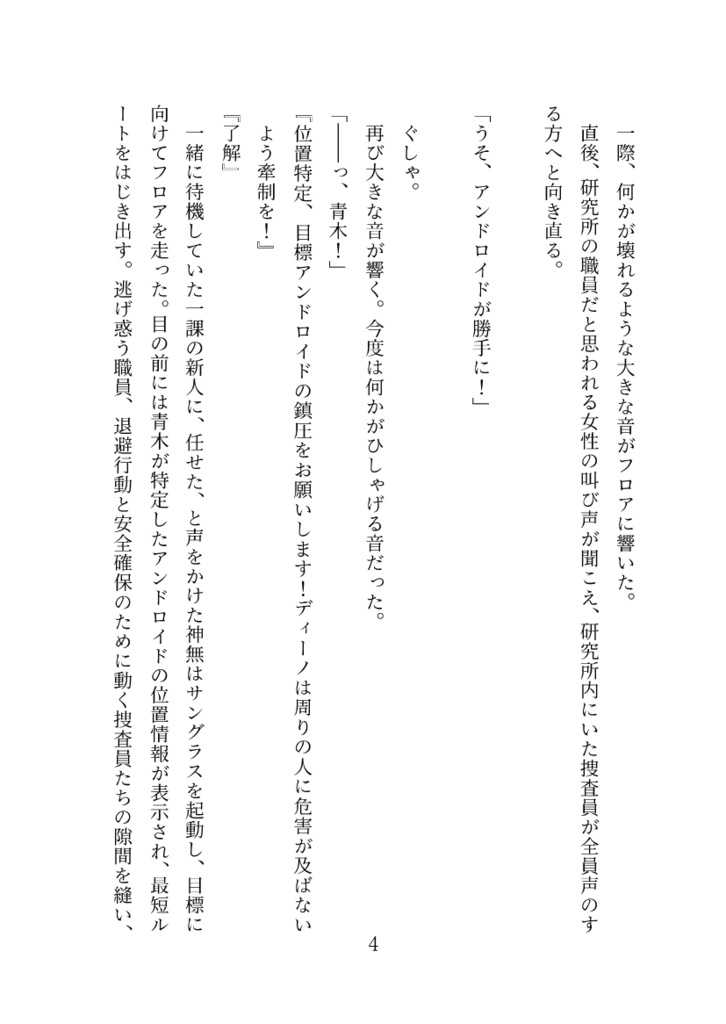 一際、何かが壊れるような大きな音がフロアに響いた。
直後、研究所の職員だと思われる女性の叫び声が聞こえ、研究所内にいた捜査員が全員声のす
る方へと向き直る。
「うそ、アンドロイドが勝手に！」
ぐしゃ。
再び大きな音が響く。今度は何かがひしゃげる音だった。
「――っ、青木！」
『位置特定、目標アンドロイドの鎮圧をお願いします！ディーノは周りの人に危害が及ばない
よう牽制を！』
『了解』
一緒に待機していた一課の新人に、任せた、と声をかけた神無はサングラスを起動し、目標に
向けてフロアを走った。目の前には青木が特定したアンドロイドの位置情報が表示され、最短ル
ートをはじき出す。逃げ惑う職員、退避行動と安全確保のために動く捜査員たちの隙間を縫い、
4